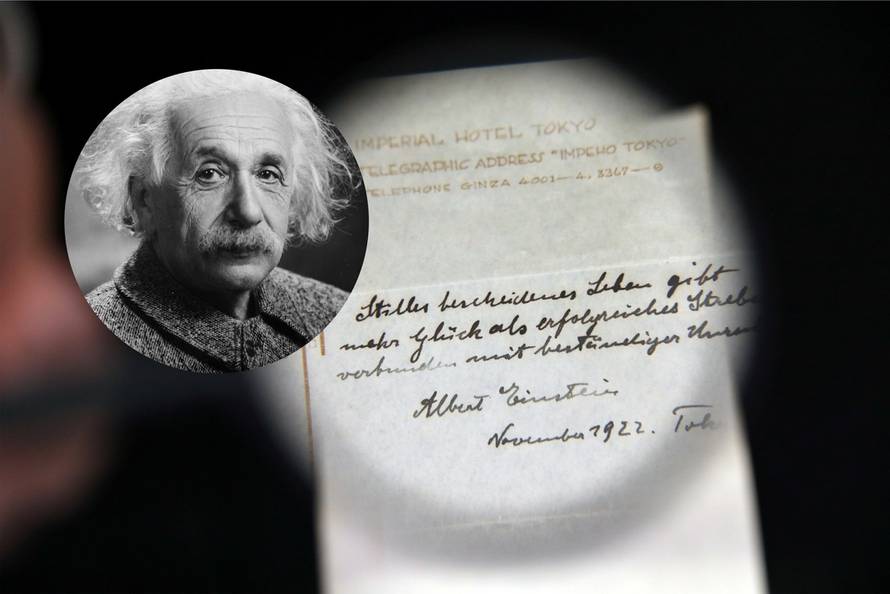 IMPERIAL HOTEL TOKYO
TELEGRAPHIC ADDRESS "IMPEHO TOKYO"
TELEPHONE GINZA 4001—4, 3367—9
Stilles bescheidenes Leben gibt
mehr Glück als erfolgreiches Streben
verbunden mit beständiger
Albert Einstein
November 1922.